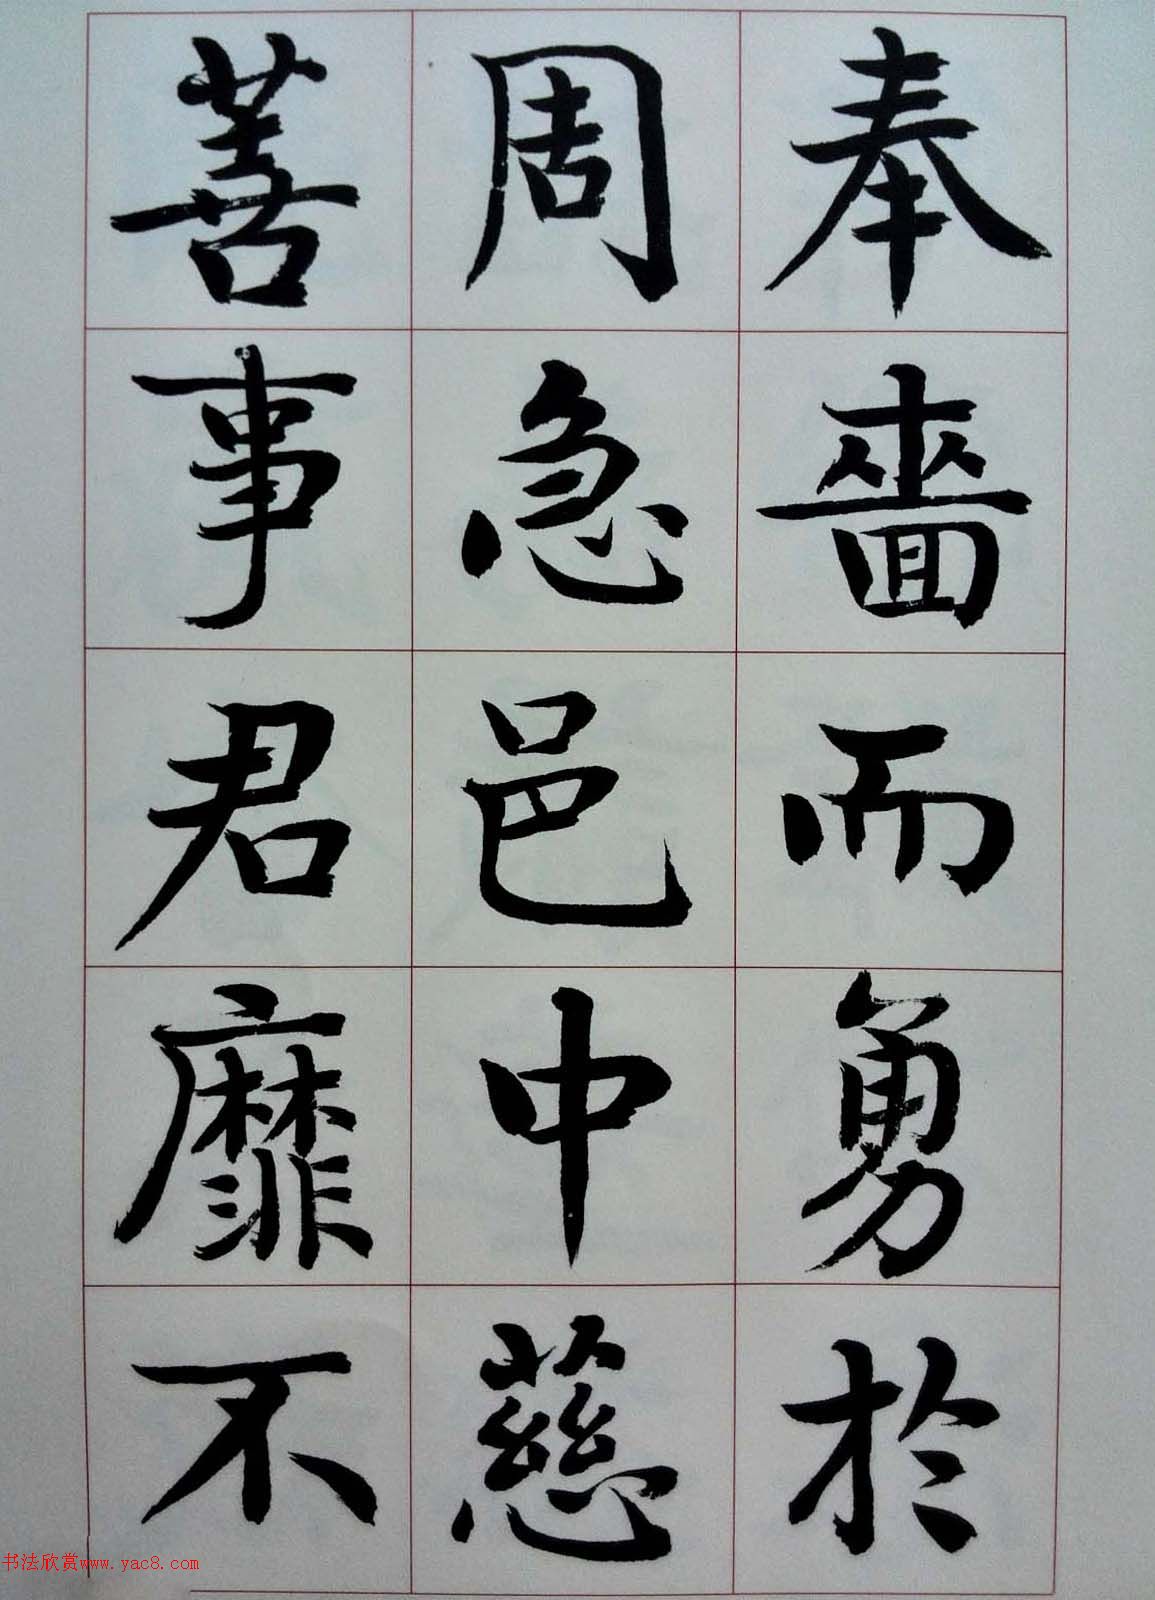 奉嗇而勇於
周急邑中慈
善事君靡不
书法欣赏www.yac8.com